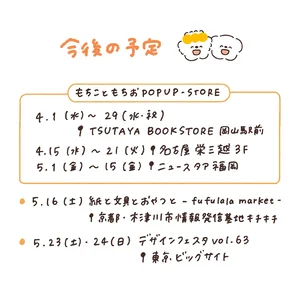 今後の予定
もちこともちおPOPUP-STORE
4.1(水)〜29(水・祝)
TSUTAYA BOOKSTORE 岡山駅前
4.15(水)〜 名古屋栄三越3F
5.1(金)〜15(金) ニュースタア福岡
5.16(土)紙と文具とおやつと - fufulala market -
京都・木津川市情報発信基地キチキチ
5.23(土)・24(日) デザインフェスタvol.63
東京ビッグサイト